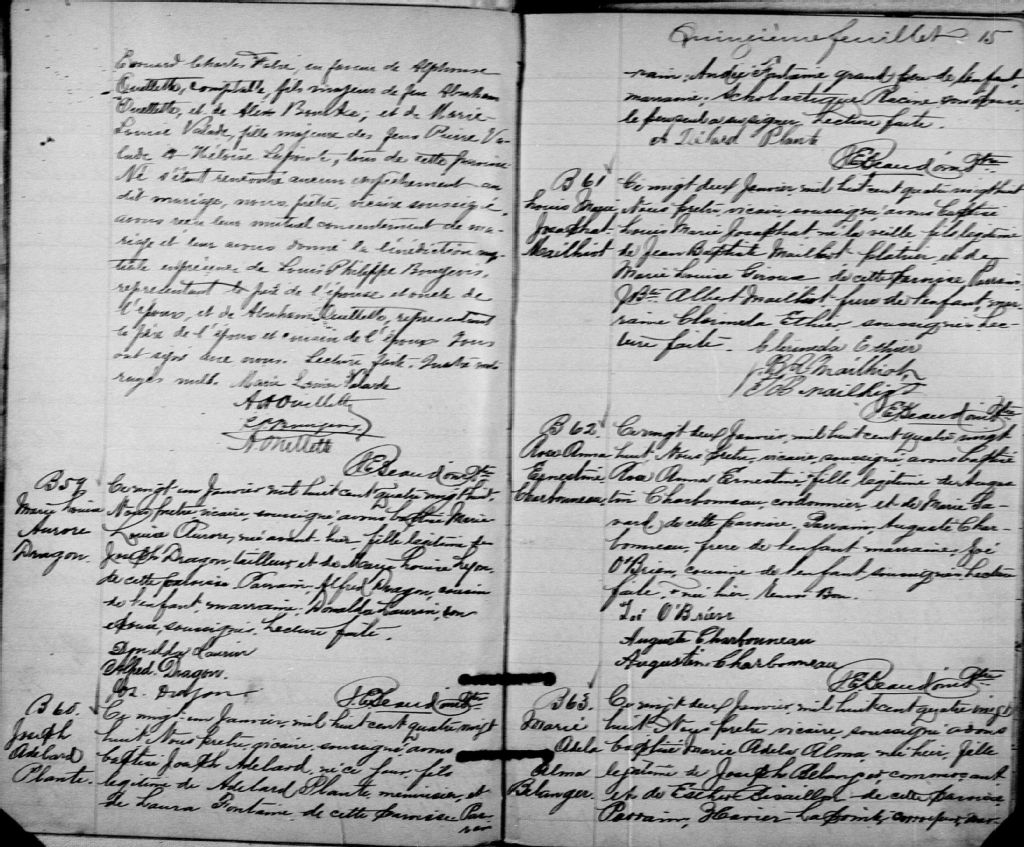 Edouard Charles Fabre, en faveur de Alphonse
Ouellette, comptable, fils majeur de feu Abraham
Ouellette, et de et de Marie
Louise Valade, fille majeure des feux Pierre Va-
lade & Héloise tous de cette paroisse
Ne s'étant rencontré aucun empêchement au
dit mariage, nous prêtre, vicaire soussigné,
avons reçu leur mutuel consentement de ma-
riage et leur avons donné la bénédiction nup-
tiale en présence de Louis Philippe Bourgeois,
représentant le père de l'épouse et oncle de
l'époux, et de Abraham Ouellette, représentant
le père de l'époux et cousin de l'époux Tous
ont signé avec nous. Lecture faite.
rayés nuls. Marie Louise Valade
A A Ouellette
L P Bourgeois
A. Ouellette
P. E. Beaudoin Ptre
B 59
Marie Louisa
Aurore
Dragon.
Ce vingt un Janvier mil huit cent quatre vingt huit
Nous prêtre vicaire, soussigné avons baptisé Marie
Louisa Aurore, née avant hier fille légitime de
Joseph Dragon, tailleur et de Marie Louise
de cette paroisse Parrain, Alfred Dragon, cousin
de l'enfant marraine, Donalda Laurin, son
épouse, soussignés. Lecture faite.
Donalda Laurin
Alfred Dragon.
Jos. Dragon
P. E. Beaudoin Ptre
B 60.
Joseph
Adelard
Plante.
Ce vingt-un Janvier, mil huit cent quatre vingt
huit Nous prêtre, vicaire, soussigné avons
baptisé Joseph Adelard, né ce jour, fils
légitime de Adelard Plante menuisier, et
de Laura Fontaine, de cette paroisse Par-
rain
Quinzième feuillet 15
rain, André Fontaine grand père de l'enfant
marraine, Scholastique Racine
le père seul a su signer, Lecture faite.
Adélard Plante
P. E. Beaudoin Ptre
B 61
Louis Marie
Josaphat
Mailhiot
Ce vingt deux Janvier, mil huit cent quatre vingt huit
Nous prêtre, vicaire, soussigné avons baptisé
Louis Marie Josaphat né la veille fils légitime
de Jean Baptiste Mailhiot et de
Marie Louise Giroux de cette paroisse Parrain,
J Bte Albert Mailhiot frère de l'enfant, mar-
raine Clorinda Ethier soussignés Lec-
ture faite. Clorinda Ethier
J. B. A. Mailhiot
J B Mailhiot
P. E. Beaudoin Ptre
B 62.
Rosa Anna
Ernestine
Charbonneau
Ce vingt deux Janvier, mil huit cent quatre vingt
huit Nous prêtre, vicaire, soussigné, avons baptisé
Rosa Anna Ernestine, fille légitime de Augus-
tin Charbonneau, cordonnier et de Marie Sa-
vard de cette paroisse, Parrain, Auguste Char-
bonneau, frère de l'enfant marraine, Zoé
O'Brien, cousine de l'enfant, soussignés Lecture
faite, née hier, renvoi bon.
Zoé O'Brien
Auguste Charbonneau
Augustin Charbonneau
P. E. Beaudoin Ptre
B 63.
Marie
Adela
Alma
Belanger.
Ce vingt deux Janvier, mil huit cent quatre vingt
huit. Nous prêtre vicaire, soussigné avons
baptisé Marie Adela Alma, née hier, fille
légitime de Joseph Belanger commerçant
et de Esther Bisaillon de cette paroisse
Parrain, Xavier Lapointe, mar-